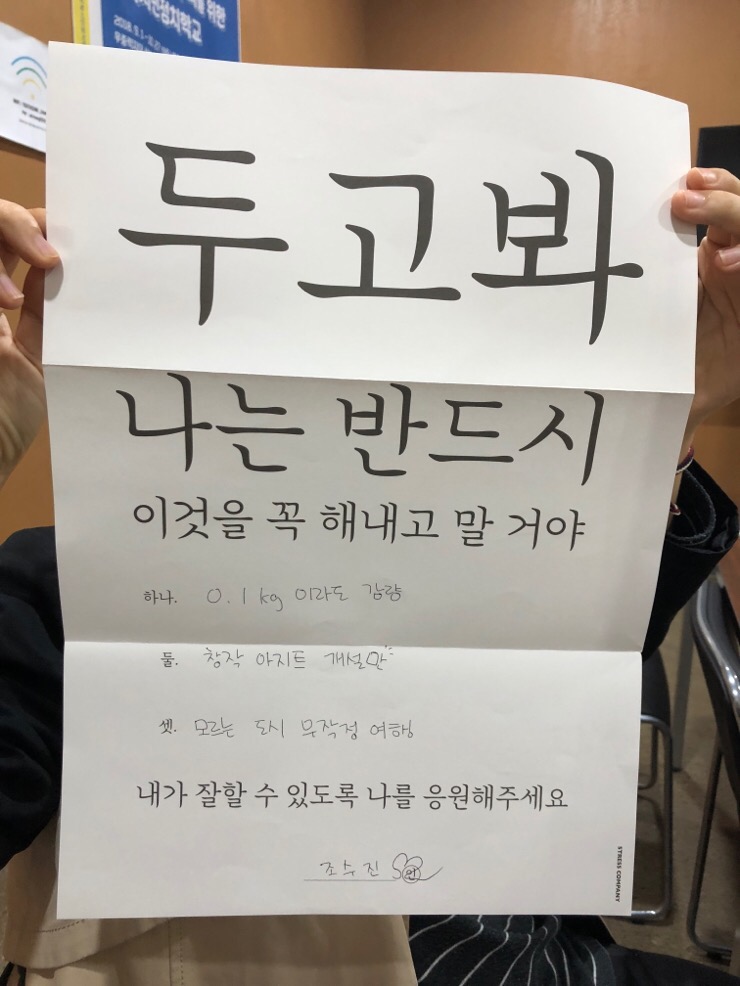 정치학교
두고봐
나는 반드시
이것을 꼭 해내고 말 거야
하나. 0.1kg 이라도 감량
둘. 창작 아지트 개설만"
셋. 모르는 도시 무작정 여행
내가 잘할 수 있도록 나를 응원해주세요
조수진 인
STRESS COMPANY